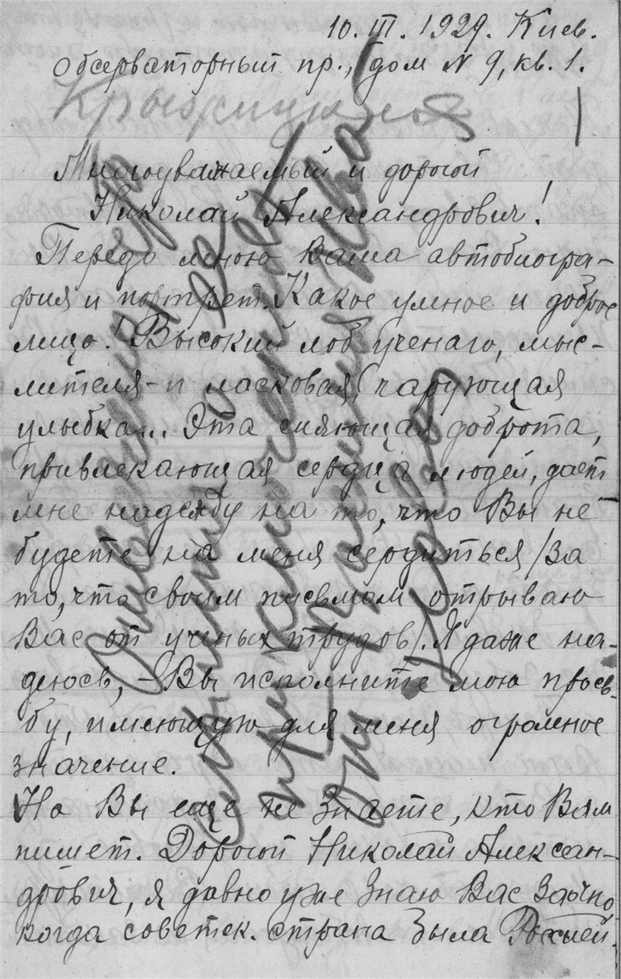 10. III. 1929. Киев.
Обсерваторный пр., дом N 9, кв. 1.
Крыжицкая
Многоуважаемый и дорогой
Николай Александрович!
Передо мною Ваша автобиогра-
фия и портрет. Какое умное и доброе
лицо! Высокий лоб ученаго, мыс-
лителя - и ласковая, чарующая
улыбка... Эта сияющая доброта,
привлекающая сердца людей, дает
мне надежду на то, что Вы не
будете на меня сердиться /за
то, что своим письмом отрываю
Вас от ученых трудов/. Я даже на-
деюсь, - Вы исполните мою прось-
бу, имеющую для меня огромное
значение.
Но Вы еще не знаете, кто Вам
пишет. Дорогой Николай Алексан-
дрович, я давно уже знаю Вас заочно,
когда советск. страна была Россией.